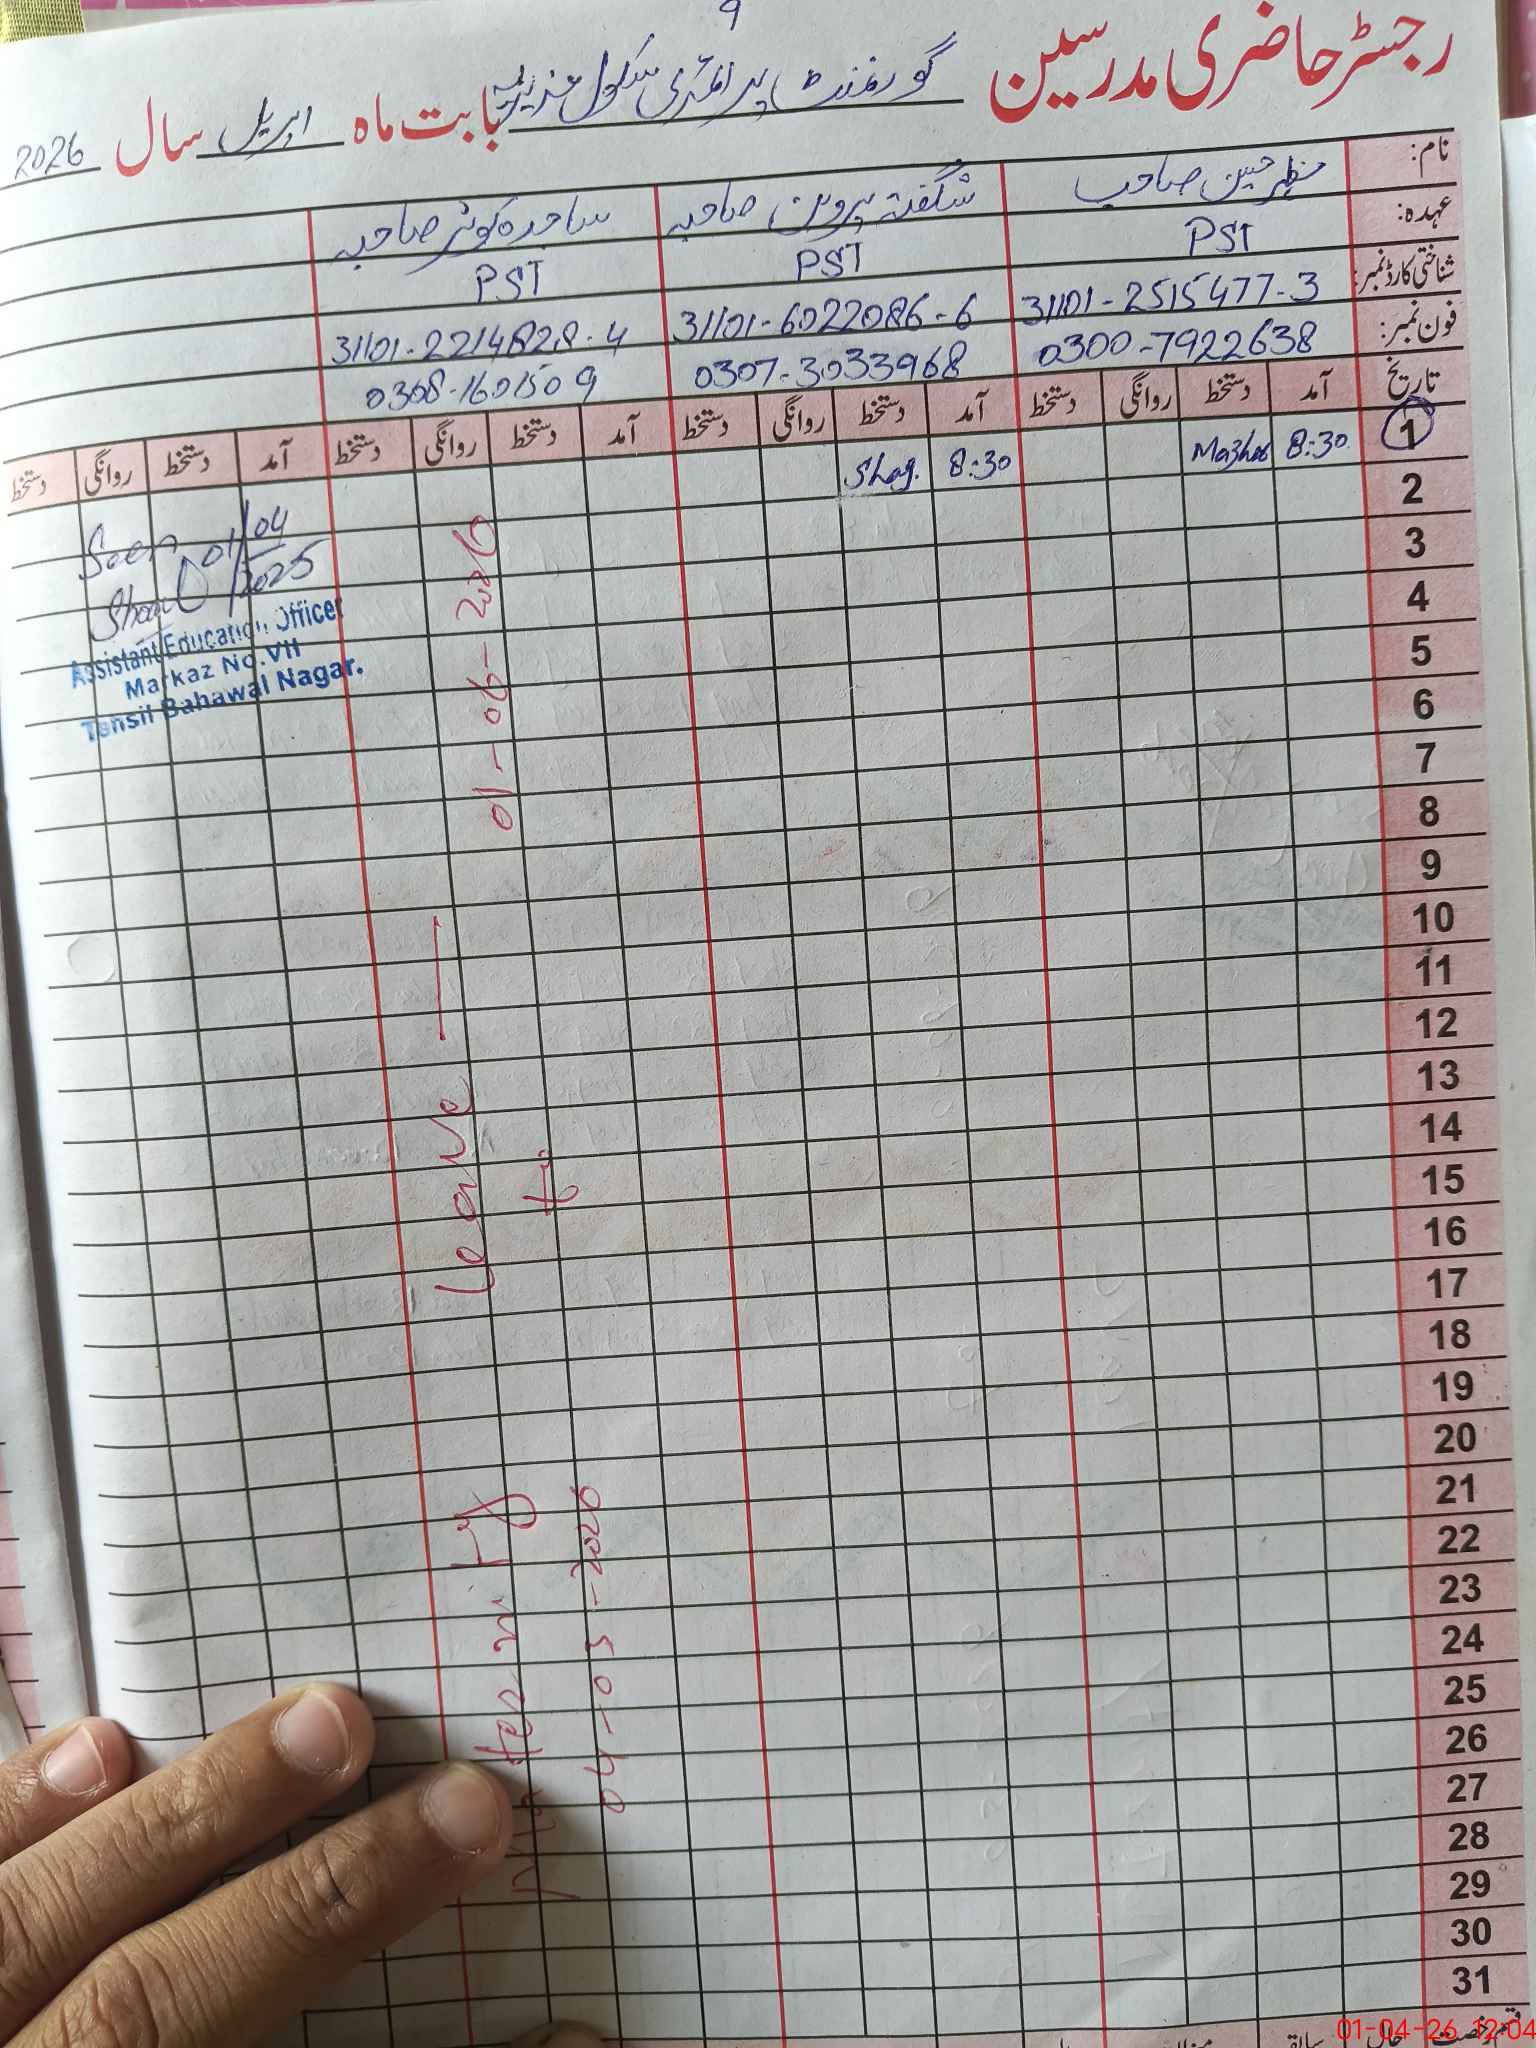 9
رجسٹر حاضری مدرسین گورنمنٹ پرائمری سکول عزیزیہ بابت ماہ اپریل سال 2026
نام: مظہر حسین صاحب شگفتہ پروین صاحبہ ساجدہ کوثر صاحبہ
عہدہ: PST PST PST
شناختی کارڈ نمبر: 31101-2515477-3 31101-6022086-6 31101-2214828-4
فون نمبر: 0300-7922638 0307-3033968 0308-1601509
تاریخ آمد دستخط روانگی دستخط آمد دستخط روانگی دستخط آمد دستخط روانگی دستخط آمد دستخط روانگی دستخط
1 8:30 Mazhar 8:30 Shag.
2
3
4
5
6
7
8
9
10
11
12
13
14
15
16
17
18
19
20
21
22
23
24
25
26
27
28
29
30
31
Seen
01/04/2025
Assistant Education Officer
Markaz No.VII
Tehsil Bahawal Nagar.
Maternity Leave — 01-06-2026
04-03-2026 to
قسم رخصت حال سابقہ میزان
01-04-26 12:04